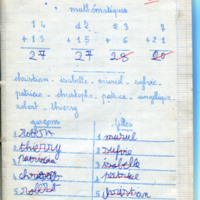 mathématiques
14 12 23 7
+13 +15 + 6 +21
27 27 28 20
christian - isabelle - muriel - sylvie.
patricia - christophe - patrice - angélique
robert - thierry
garçons filles
1 robert 1 muriel
2 thierry 2 sylvie
3 patrice 3 isabelle
4 4 patricia
5 robert 5